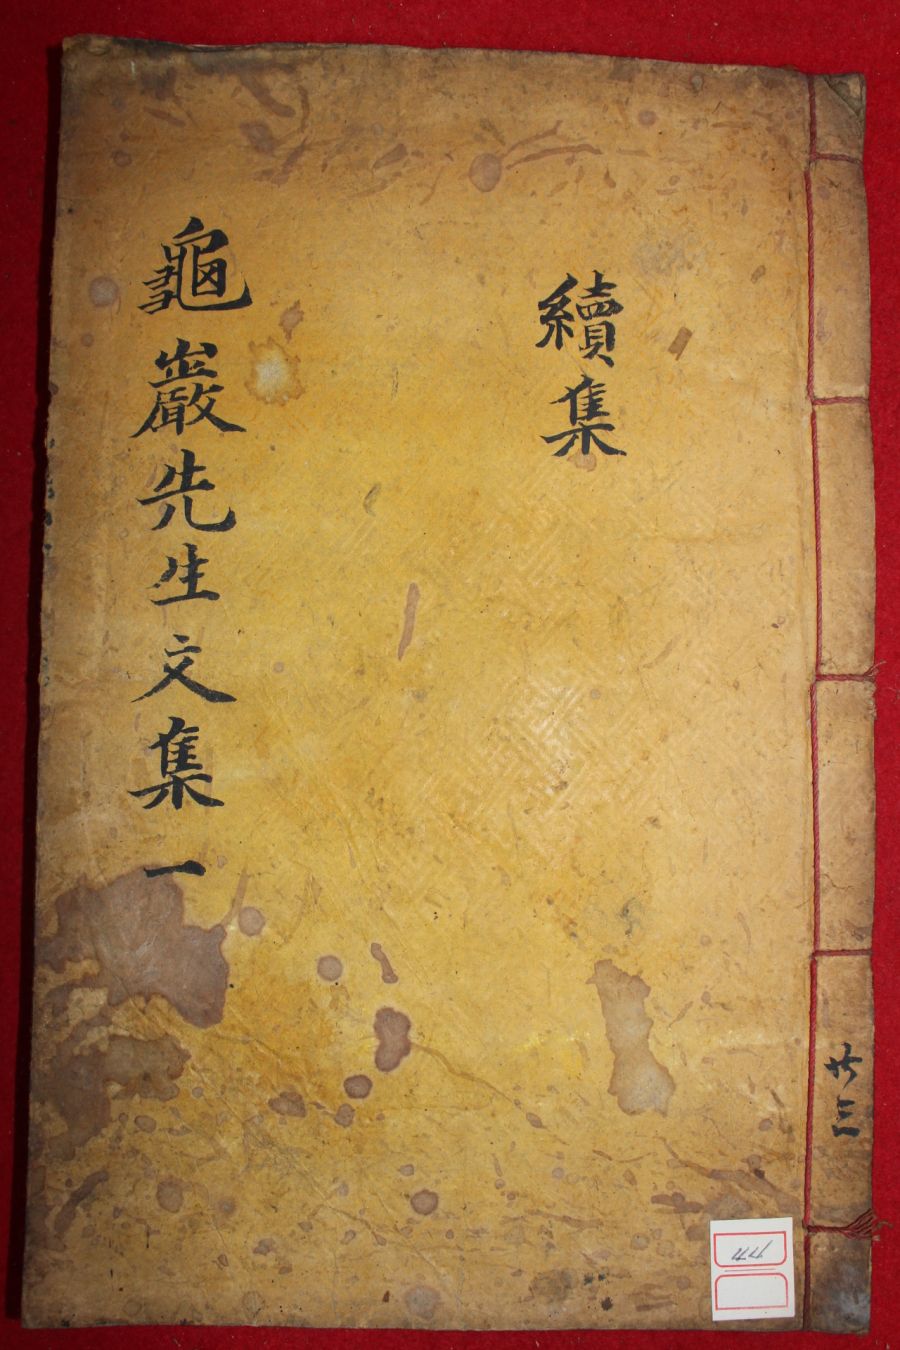 共三
續集
龜巖先生文集 一